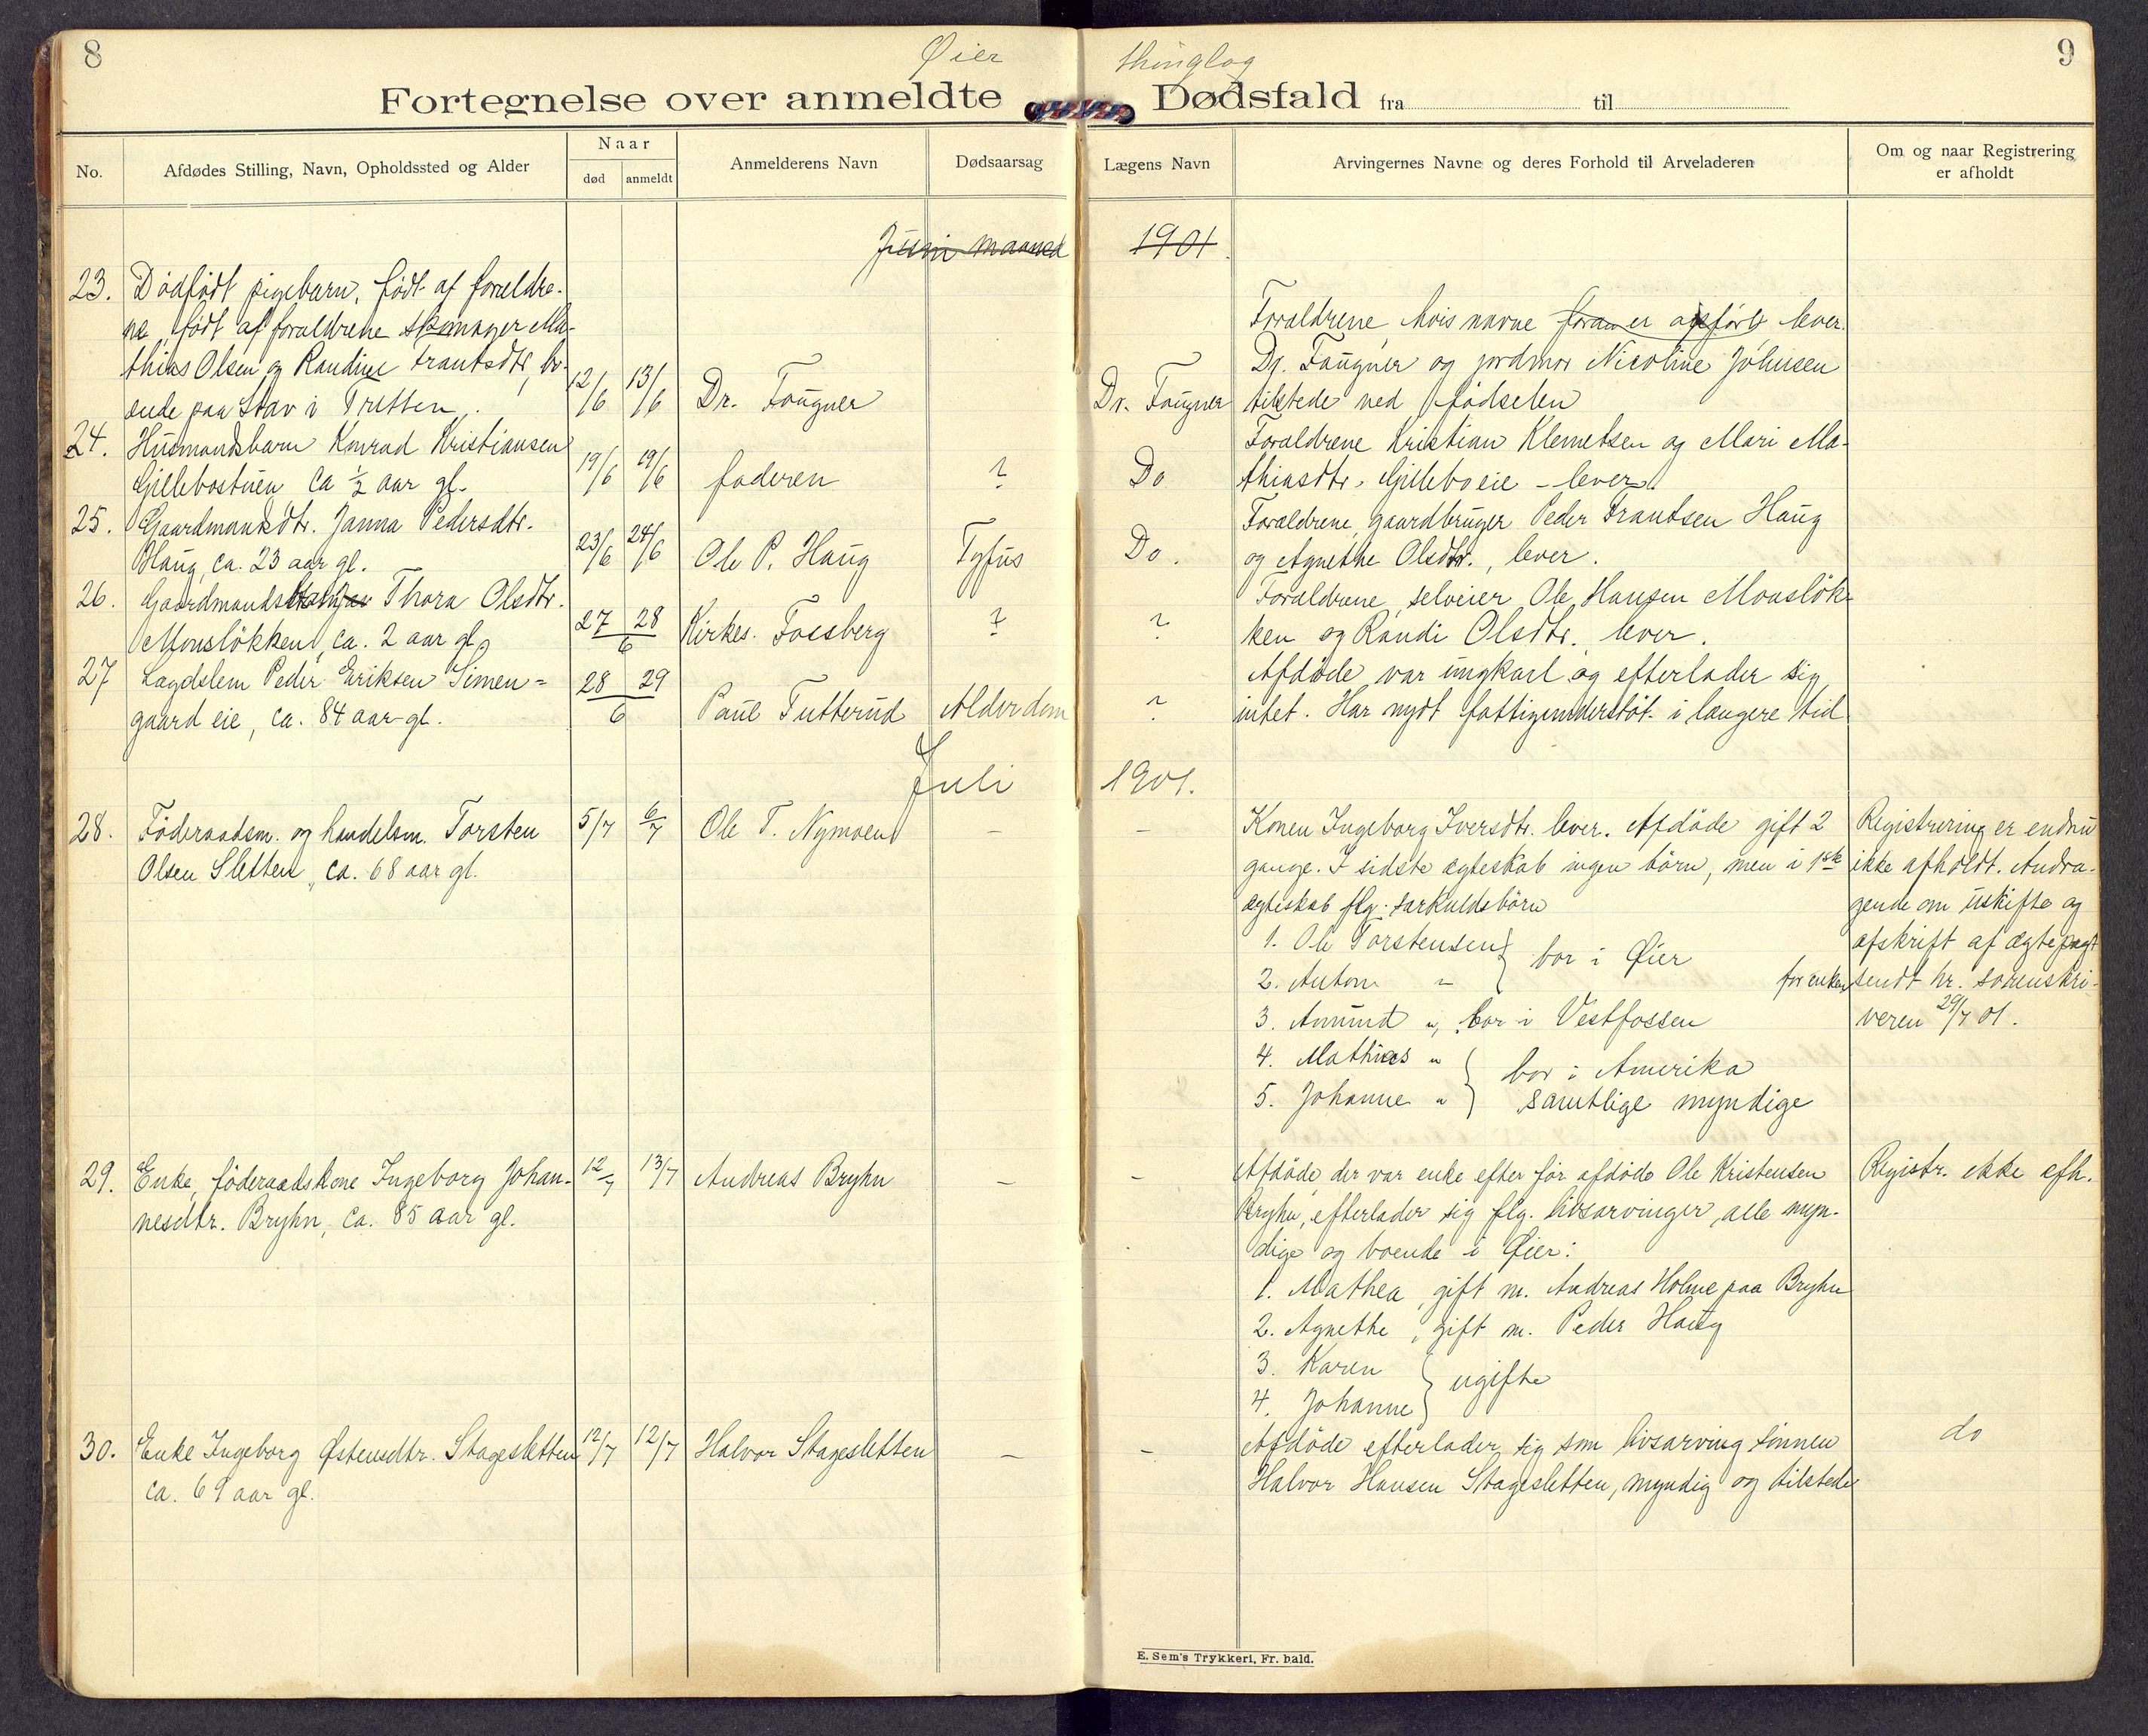 8
Øier
thinglag
9
Fortegnelse over anmeldte Dødsfald fra til
No.
Afdødes Stilling, Navn, Opholdssted og Alder
Naar
død
anmeldt
Anmelderens Navn
Dødsaarsag
Lægens Navn
Arvingernes Navne og deres Forhold til Arveladeren
Om og naar Registrering
er afholdt
Juni maaned 1901
23. Dödfödt pigebarn, födt af forældre-
ne, födt af forældrene skomager Ma-
thias Olsen og Randine Frantsdtr, bo-
ende paa Stav i Tretten.
12/6 13/6 Dr. Fougner
Dr. Fougner
Forældrene, hvis navne foran er opfört lever.
Dr. Fougner og jordmor Nicoline Johnsen
tilstede ved födselen
24. Husmandsbarn Konrad Kristiansen
Gillebostuen ca ½ aar gl.
19/6 19/6 faderen ?
Do
Forældrene Kristian Klemetsen og Mari Ma-
thiasdtr. Gilleboeie - lever.
25. Gaardmandsdtr. Janna Pedersdtr.
Haug, ca. 23 aar gl.
23/6 24/6 Ole P. Haug Tyfus
Do.
Forældrene, gaardbruger Peder Frantsen Haug
og Agnethe Olsdtr., lever.
26. Gaardmands Thora Olsdtr.
Monslökken, ca. 2 aar gl.
27 28
6
Kirkes. Fossberg ?
?
Forældrene, selveier Ole Hansen Monslök-
ken og Randi Olsdtr. lever.
27 Lægdslem Peder Eriksen Simen=
gaard eie, ca. 84 aar gl.
28 29
6
Paul Tutterud Alderdom
?
Afdöde var ungkarl og efterlader sig
intet. Har nydt fattigunderstöt. i længere tid
Juli 1901.
28. Föderaadsm. og handelsm. Torsten
Olsen Sletten, ca. 68 aar gl.
5/7 6/7 Ole T. Nymoen –
–
Konen Ingeborg Iversdtr. lever. Afdöde gift 2
gange. I sidste ægteskab ingen börn, men i 1ste
ægteskab flg. særkuldsbörn
1. Ole Torstensen } bor i Øier
2. Anton "
3. Amund ", bor i Vestfossen
4. Mathias " } bor i Amerika
5. Johanne " samtlige myndige
Registrering er endnu
ikke afholdt. Andra-
gende om uskifte og
afskrift af ægtepagt
for enken sendt hr. sorenskri-
veren 29/7 01.
29. Enke, föderaadskone Ingeborg Johan-
nesdtr. Bryhn, ca. 85 aar gl.
12/7 13/7 Andreas Bryhn –
–
Afdöde, der var enke efter för afdöde Ole Kristensen
Bryhn, efterlader sig flg. livsarvinger, alle myn-
dige og boende i Øier:
1. Mathea, gift m. Andreas Holme paa Bryhn
2. Agnethe, gift m. Peder Haug
3. Karen } ugifte
4. Johanne
Registr. ikke afh.
30. Enke Ingeborg Østensdtr. Stagesletten
ca. 69 aar gl.
12/7 12/7 Halvor Stagesletten –
–
Afdöde efterlader sig som livsarving sönnen
Halvor Hansen Stagesletten, myndig og tilstede
do
E. Sem's Trykkeri, Fr. hald.